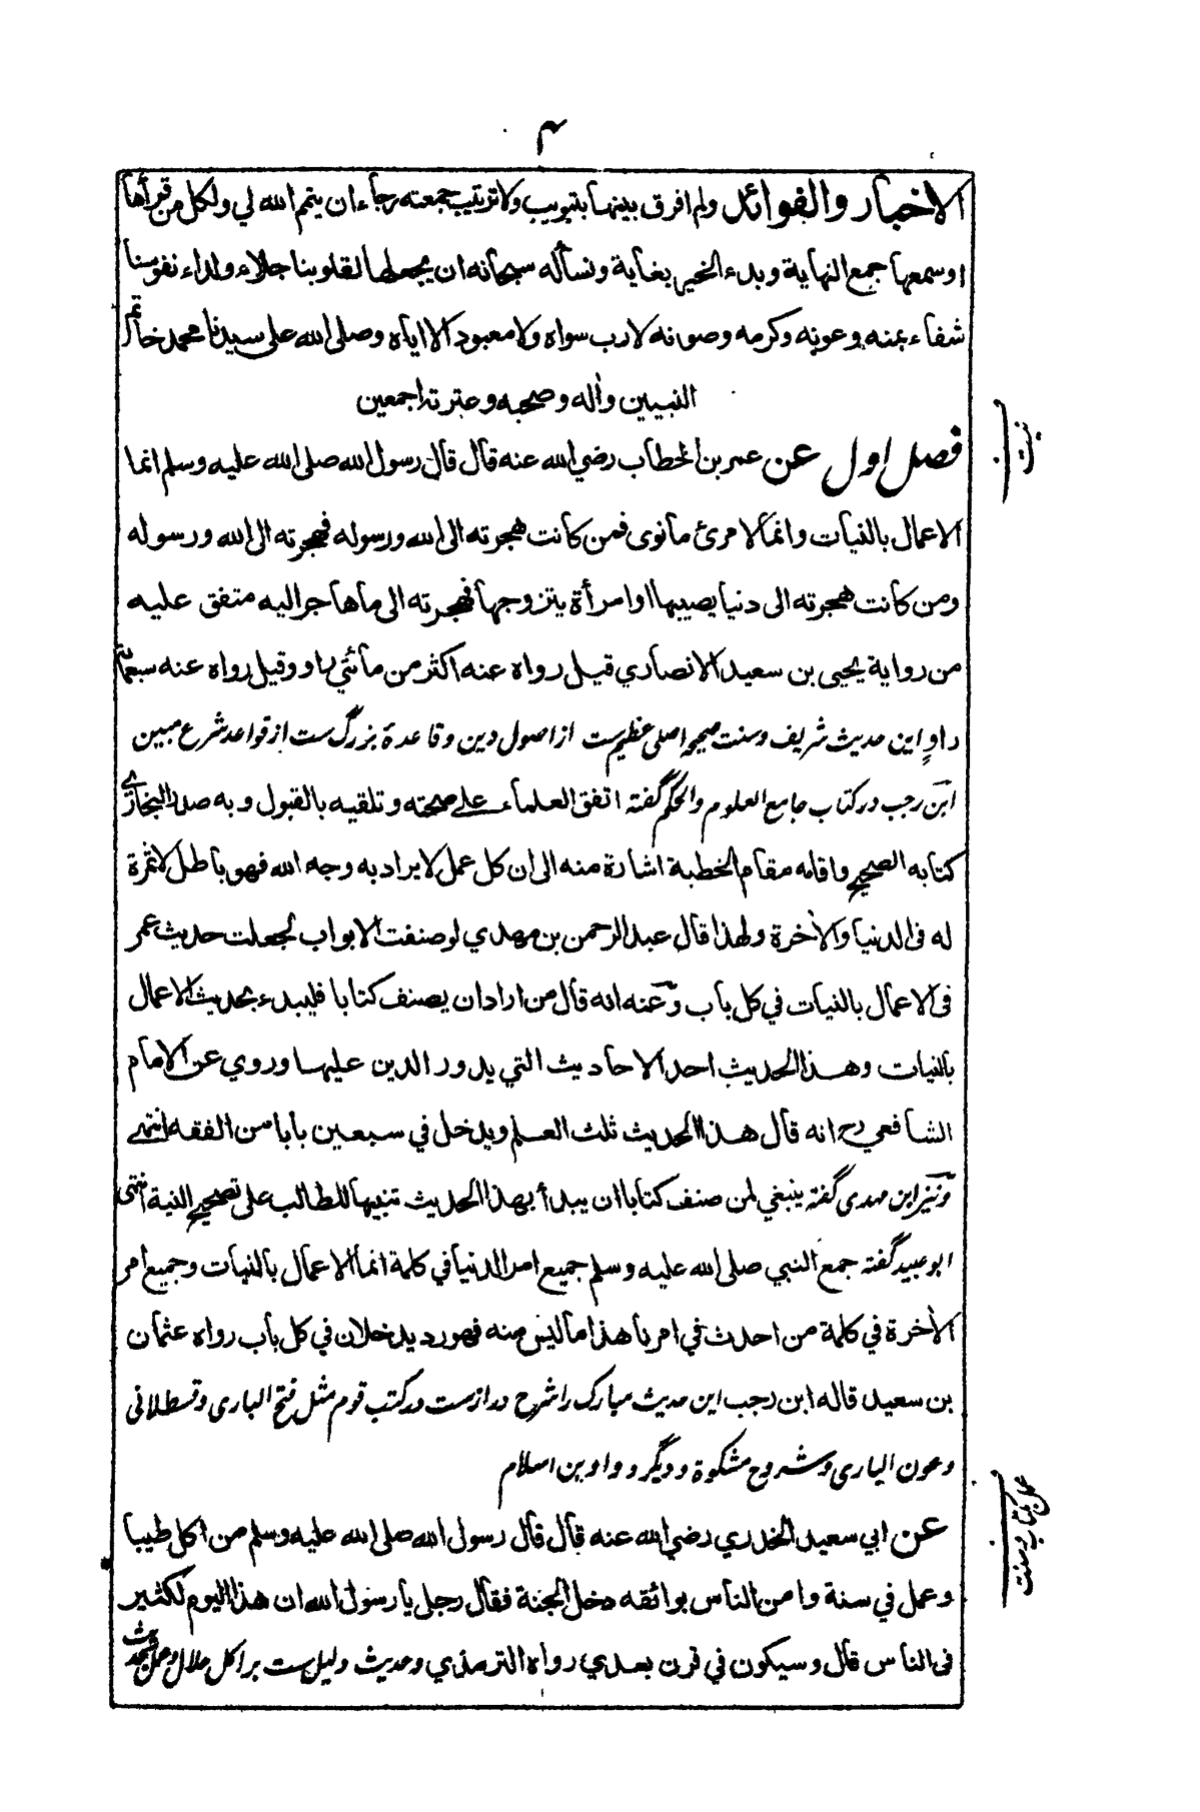 ۴
الاخبار والفوائد ولم افرق بينها بتبويب ولا ترتيب جمعته رجاء ان يتم الله لي ولكل من قرأها
او سمعها جمع النهاية وبدء الخير بغاية ونسأله سبحانه ان يجعلها لقلوبنا جلاء ولداء نفوسنا
شفاء بمنه وعونه وكرمه وصونه لا رب سواه ولا معبود الا اياه وصلى الله على سيدنا محمد خاتم
النبيين واٰله وصحبه وعترته اجمعين
نيت
فصل اول عن عمر بن الخطاب رضي الله عنه قال قال رسول الله صلى الله عليه وسلم انما
الاعمال بالنيات وانما لامرئ ما نوى فمن كانت هجرته الى الله ورسوله فهجرته الى الله ورسوله
ومن كانت هجرته الى دنيا يصيبها او امرأة يتزوجها فهجرته الى ما هاجر اليه متفق عليه
من رواية يحيى بن سعيد الانصاري قيل رواه عنه اكثر من مائتي راو وقيل رواه عنه سبعمائة
راوٍ اين حديث شريف وسنت صحيحه اصلى عظيم ست از اصول دين وقاعدهٔ بزرگ ست از قواعد شرع مبين
ابن رجب در كتاب جامع العلوم والحكم گفته اتفق العلماء على صحته وتلقيه بالقبول وبه صدر البخارى
كتابه الصحيح واقامه مقام الخطبة اشارة منه الى ان كل عمل لا يراد به وجه الله فهو باطل لا ثمرة
له في الدنيا والاٰخرة ولهذا قال عبد الرحمن بن مهدي لو صنفت الابواب لجعلت حديث عمر
في الاعمال بالنيات في كل باب وعنه انه قال من اراد ان يصنف كتابا فليبدء بحديث الاعمال
بالنيات وهذا الحديث احد الاحاديث التي يدور الدين عليها وروي عن الامام
الشافعي رح انه قال هذا الحديث ثلث العلم ويدخل في سبعين بابا من الفقه انتهى
ونيز ابن مهدى گفته ينبغي لمن صنف كتابا ان يبدأ بهذا الحديث تنبيها للطالب على تصحيح النية انتهى
ابو عبيد گفته جمع النبي صلى الله عليه وسلم جميع امر الدنيا في كلمة انما الاعمال بالنيات وجميع امر
الاٰخرة في كلمة من احدث في امرنا هذا ما ليس منه فهو رد يدخلان في كل باب رواه عثمان
بن سعيد قاله ابن رجب اين حديث مبارك را شرح دراز ست در كتب قوم مثل فتح البارى وقسطلانى
وعون البارى وشروح مشكوة وديگر دواوين اسلام
عمل بكتاب وسنت
عن ابي سعيد الخدري رضي الله عنه قال قال رسول الله صلى الله عليه وسلم من اكل طيبا
وعمل في سنة وامن الناس بوائقه دخل الجنة فقال رجل يا رسول الله ان هذا اليوم لكثير
في الناس قال وسيكون في قرن بعدي رواه الترمذي وحديث دليل ست بر اكل حلال وعمل بحديث